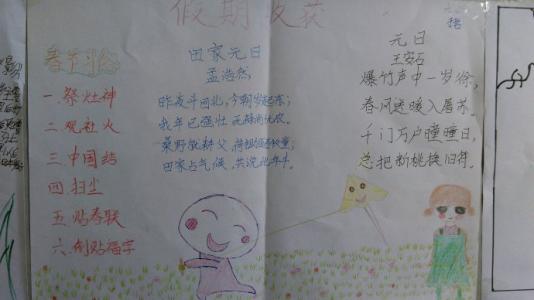 假期收获
春节
一.祭灶神
二.观社火
三.中国结
四.扫尘
五.贴春联
六.倒贴福字
田家元日
孟浩然
昨夜斗回北,今朝岁起东;
我年已强壮,无禄尚忧农。
桑野就耕父,荷锄随牧童;
田家占气候,共说此年丰
元日
王安石
爆竹声中一岁除,
春风送暖入屠苏。
千门万户曈曈日,
总把新桃换旧符。